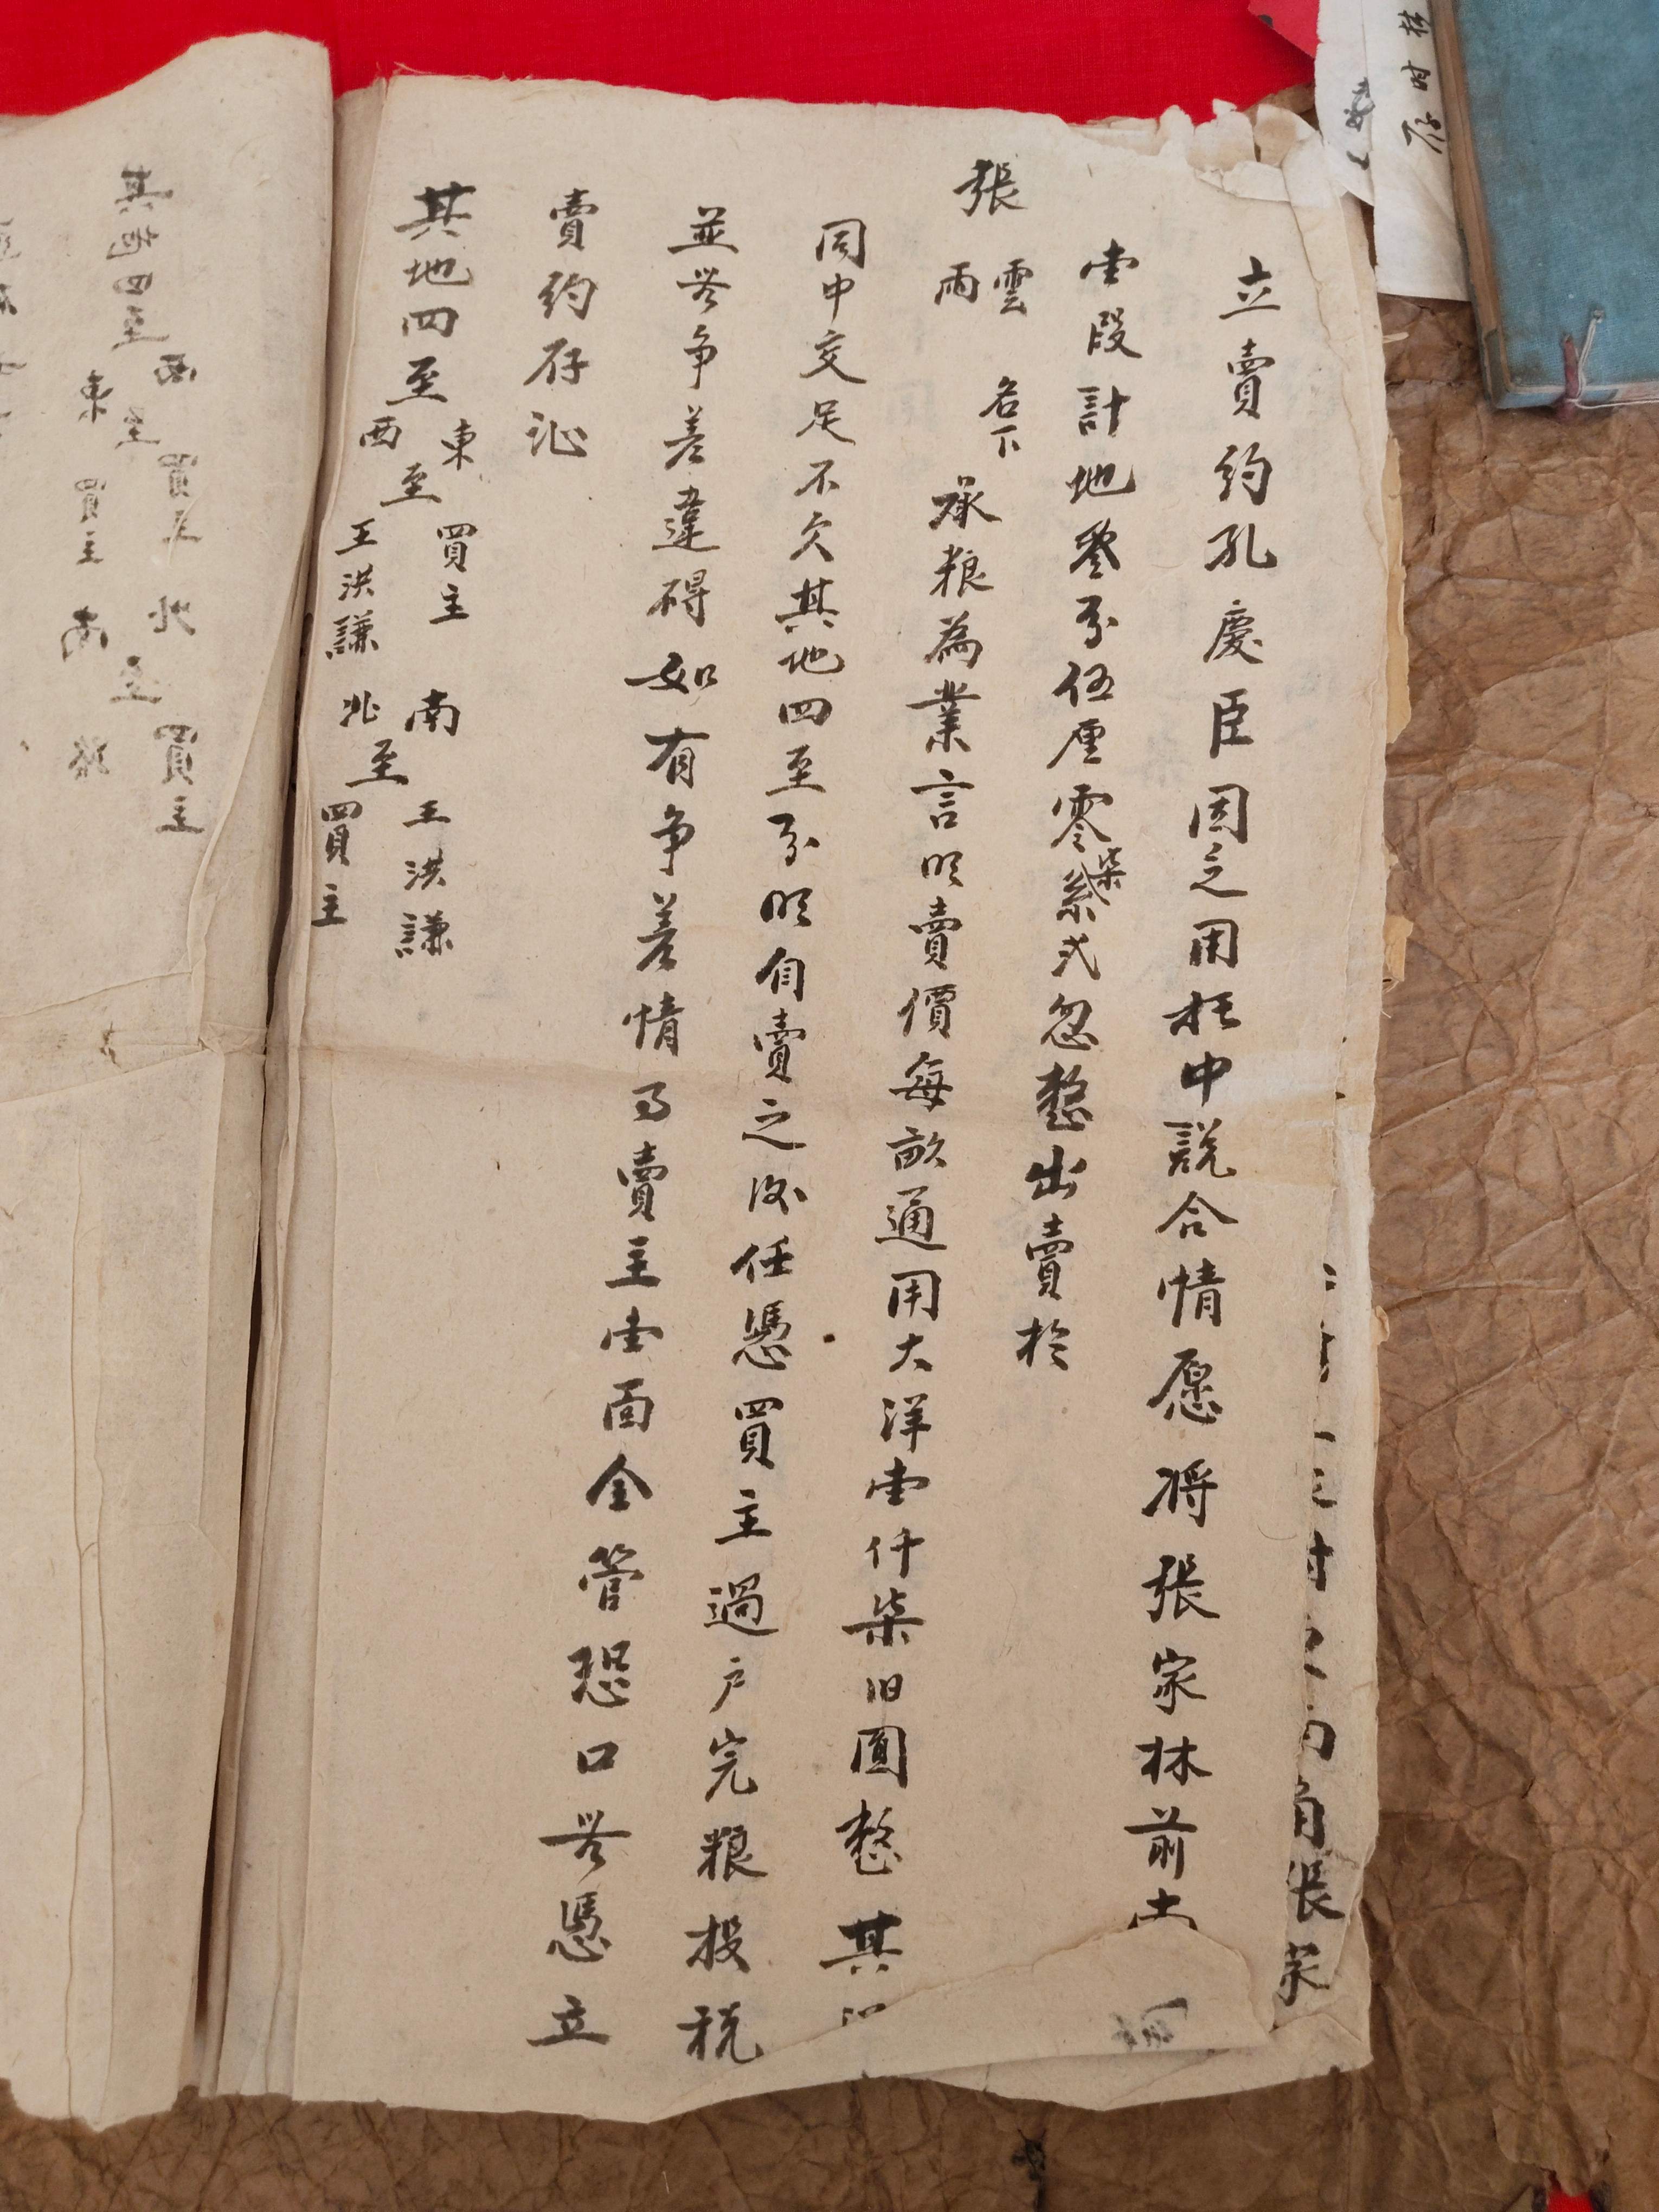 立賣約孔慶臣因乏用托中説合情愿将張家林前
壹段計地叁分伍厘零柒系弍忽整出賣於
張雲雨名下承粮為業言明賣價每畝通用大洋壹仟柒旧圓整其
同中交足不欠其地四至分明自賣之後任憑買主過户完粮投税
並無争差違碍如有争差情乃賣主壹面全管恐口無憑立
賣約存証
其地四至東至買主南至王洪謙
西至王洪謙北至買主